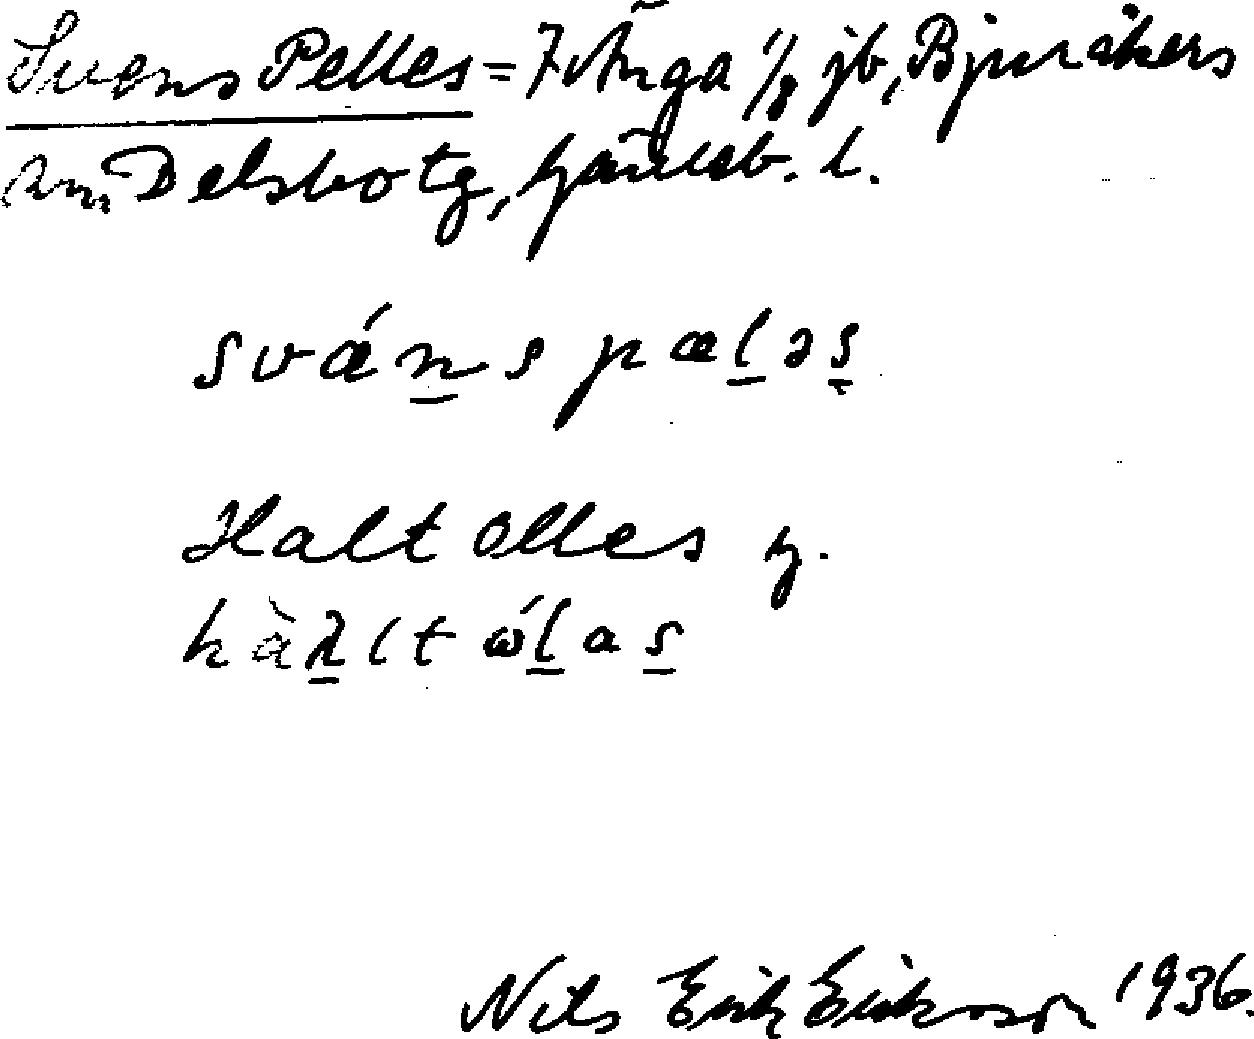 Svens Pelles = 7 Änga 1/8 jb, Bjuråkers
sn, Delsbo tg, Gävleb. l.
svǽn̲s pæl̲əs̲
Halt Olles g.
hàl̲lt ól̲as̲
Nils Erik Eriksson 1936.